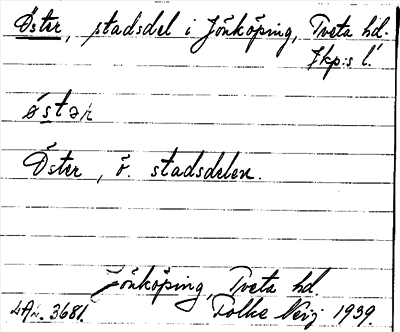 Öster, stadsdel i Jönköping, Tveta hd.
Jkp:s l.
östər
Öster, ö. stadsdelen.
Jönköping, Tveta hd
3681. Folke 1939